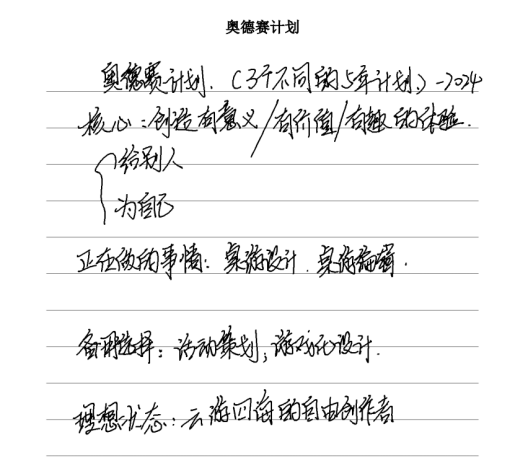 奥德赛计划
奥德赛计划.(3个不同的5年计划)-2024
核心:创造有意义/有价值/有趣的体验.
给别人
为自己
正在做的事情:桌游设计.桌游编辑.
备用选择:活动策划,游戏化设计.
理想状态:云游四海的自由创作者